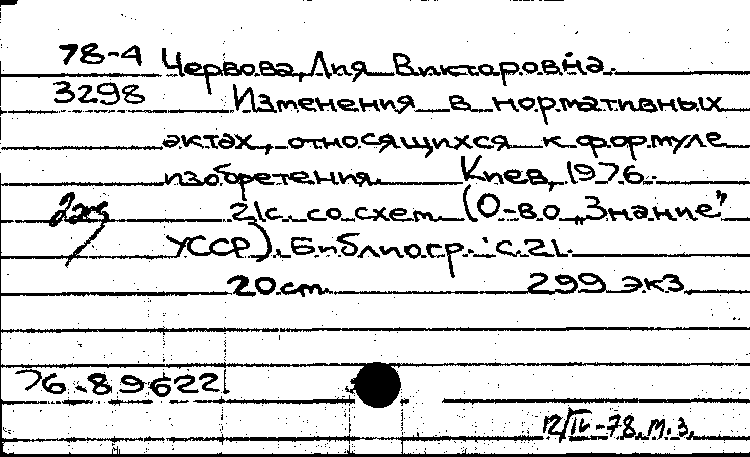 78-4 Червова, Лия Викторовна.
3298 Изменения в нормативных
актах, относящихся к формуле
изобретения. Киев, 1976.
2 экз
21с. со схем. (О-во „Знание"
УССР). Библиогр.: с. 21.
20 см. 299 экз.
76-89622.
12/IV-78. М.З.